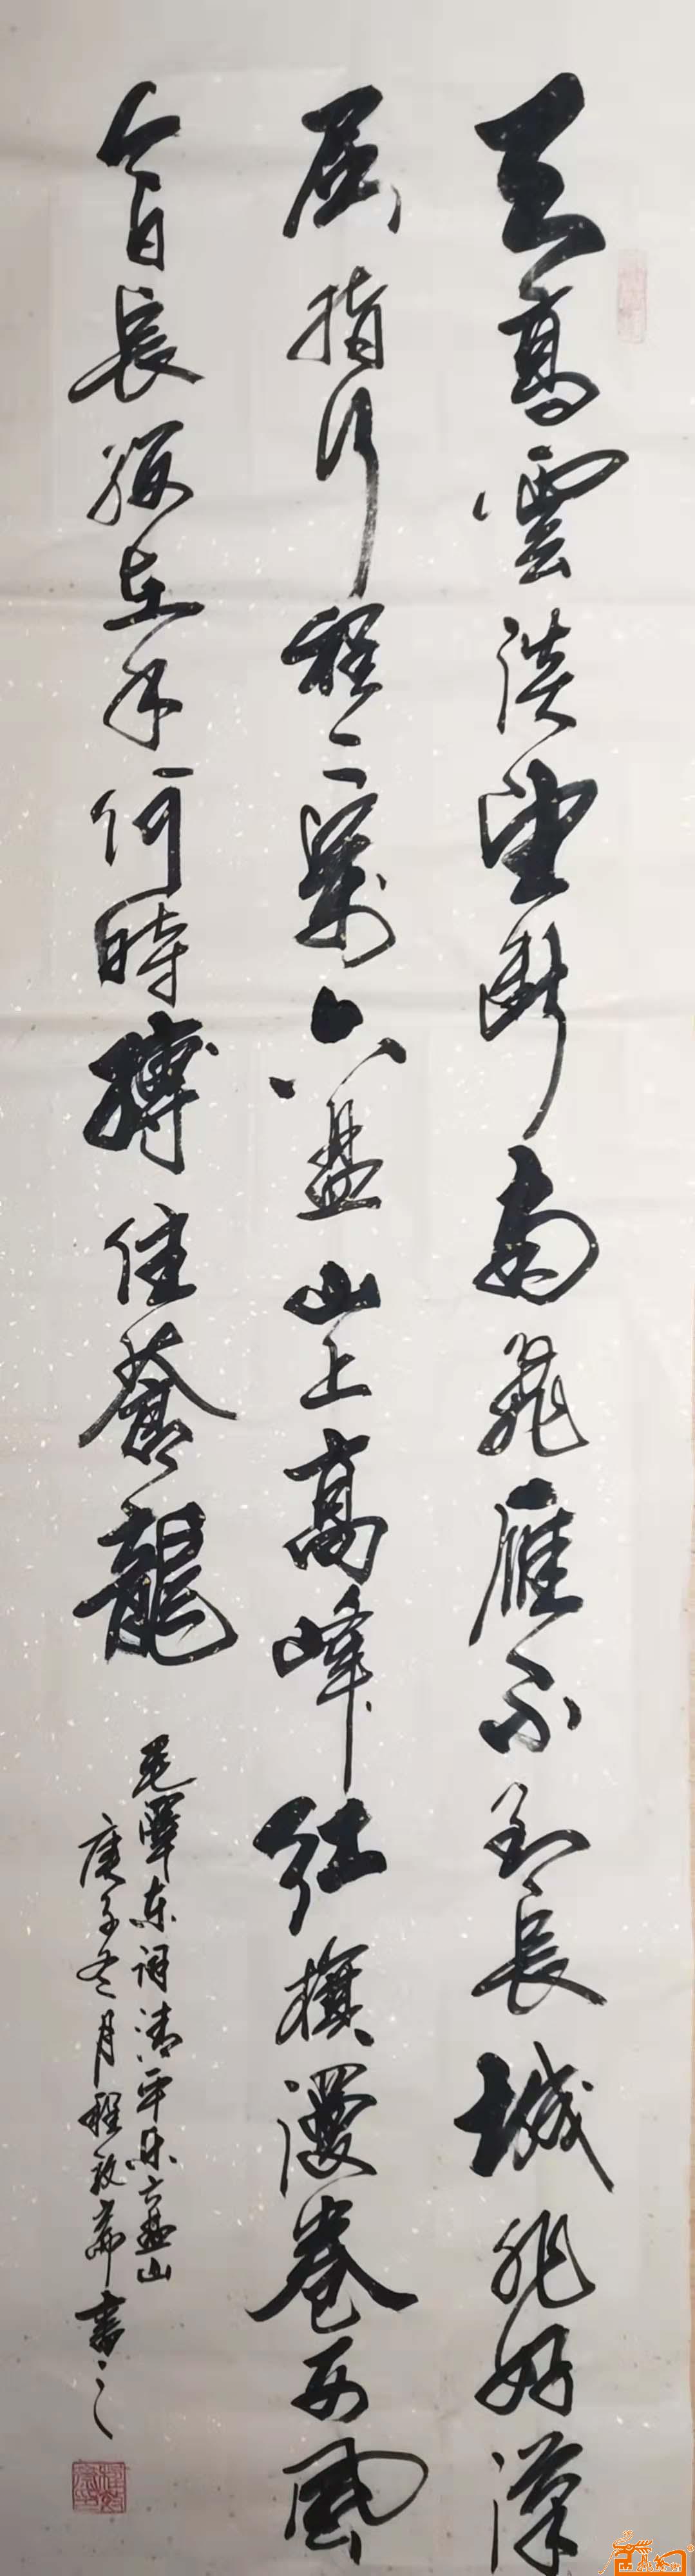 天高雲淡望斷南飛雁不到長城非好漢
屈指行程二萬六盘山上高峰紅旗漫卷西風
今日長纓在手何時縛住蒼龍
毛澤东词清平乐六盘山
庚子冬月程書之